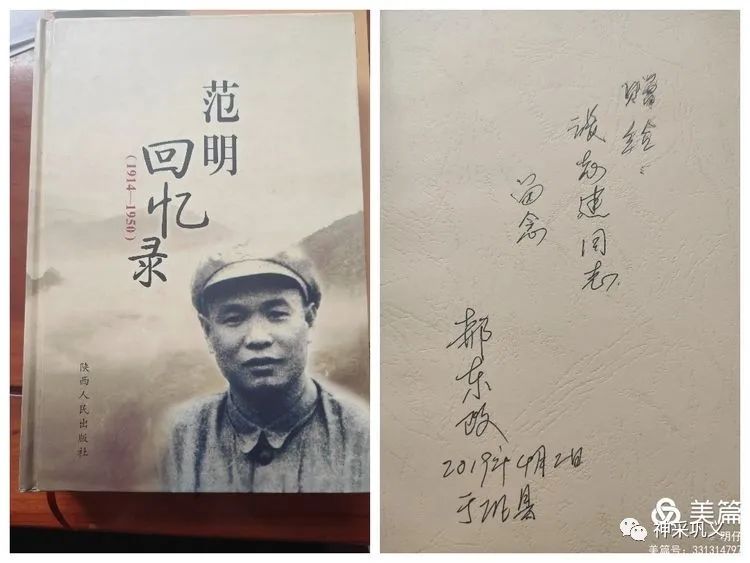 范明
回忆录
(1914—1950)
陕西人民出版社
赠给
志建同志
留念
郝东政
2019年4月2日
于
县
美篇
神采巩义
明仔
美篇号:331314797